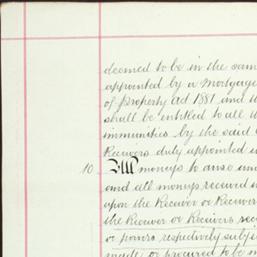 deemed to be in the same
appointed by a Mortgage
of Property Act 1881 and
shall be entitled to all
immunities by the said
Receivers duly appointed
10 All moneys to arise
and all moneys received
upon the Receiver or Receivers
the Receiver or Receivers
or powers respectively
made or procured to be